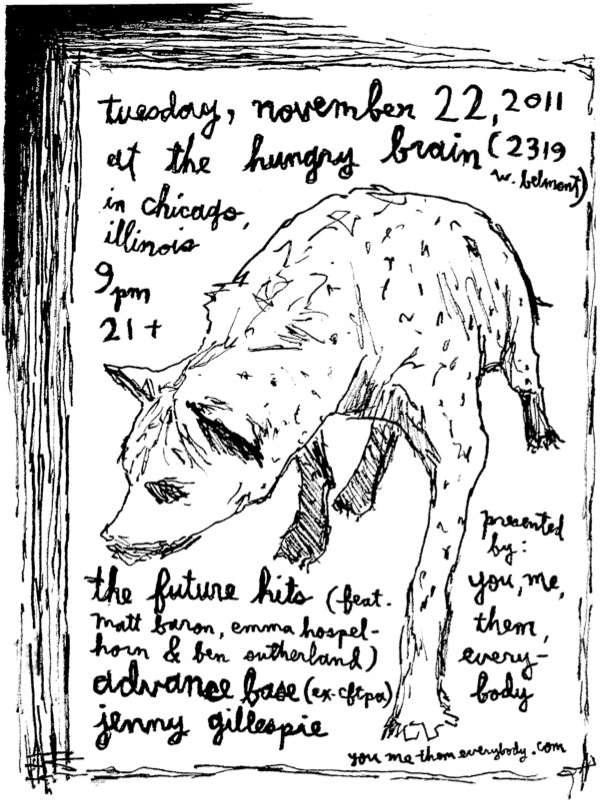 tuesday, november 22, 2011
at the hungry brain (2319
w. belmont)
in chicago,
illinois
9pm
21+
presented
by:
you, me,
them,
every-
body
the future hits (feat.
matt baron, emma hospel-
horn & ben sutherland)
advance base (ex-cftpa)
jenny gillespie
youmethemeverybody.com